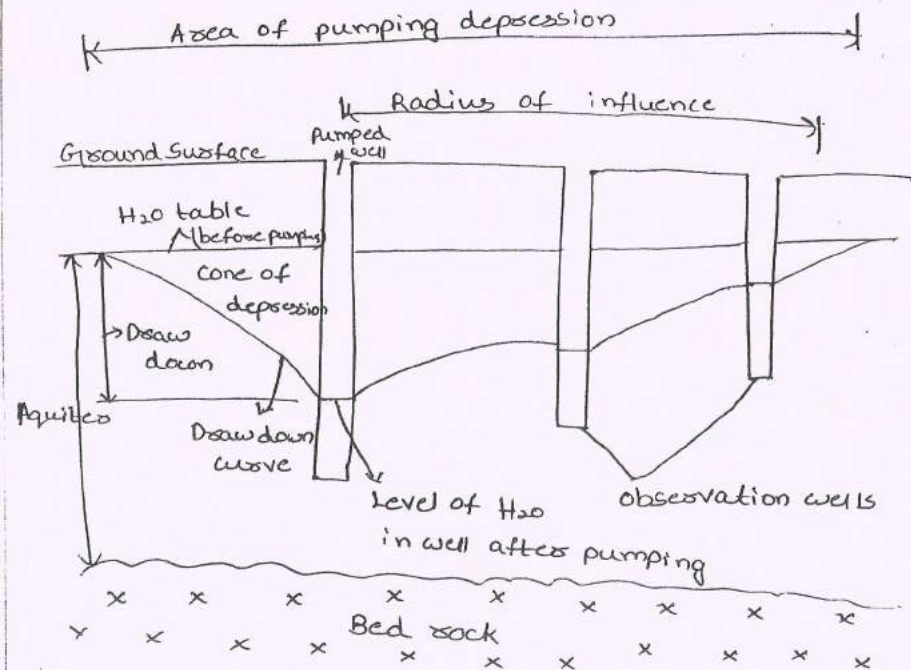 Area of pumping depression
Radius of influence
Pumped
well
Ground Surface
H2O table
(before pumping)
Cone of
depression
Draw
down
Aquifer
Draw down
curve
Level of H2O
in well after pumping
observation wells
Bed rock